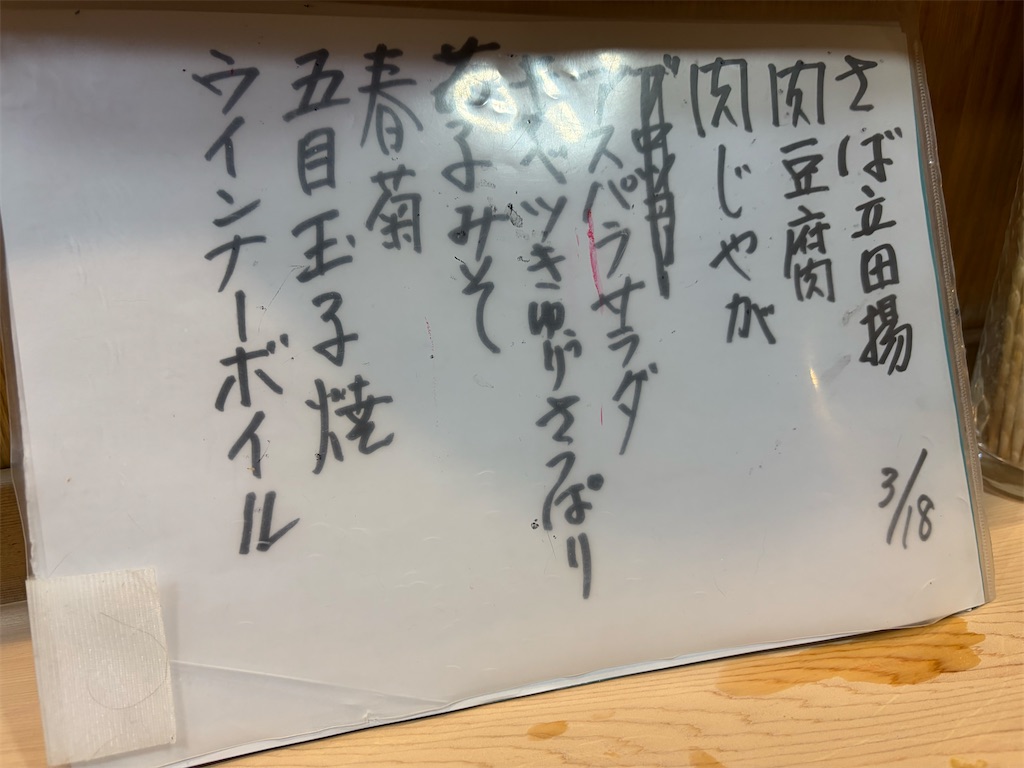 さば立田揚
肉豆腐
肉じゃが
アスパラサラダ
キャベツきゅうりさっぱり
なすみそ
春菊
五目玉子焼
ウインナーボイル
3/18